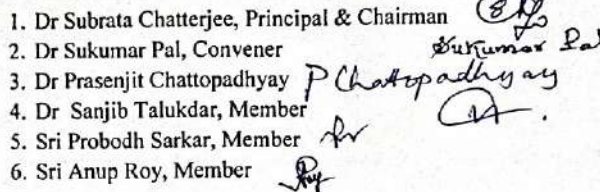 1. Dr Subrata Chatterjee, Principal & Chairman
2. Dr Sukumar Pal, Convener Sukumar Pal
3. Dr Prasenjit Chattopadhyay P Chattopadhyay
4. Dr Sanjib Talukdar, Member
5. Sri Probodh Sarkar, Member
6. Sri Anup Roy, Member